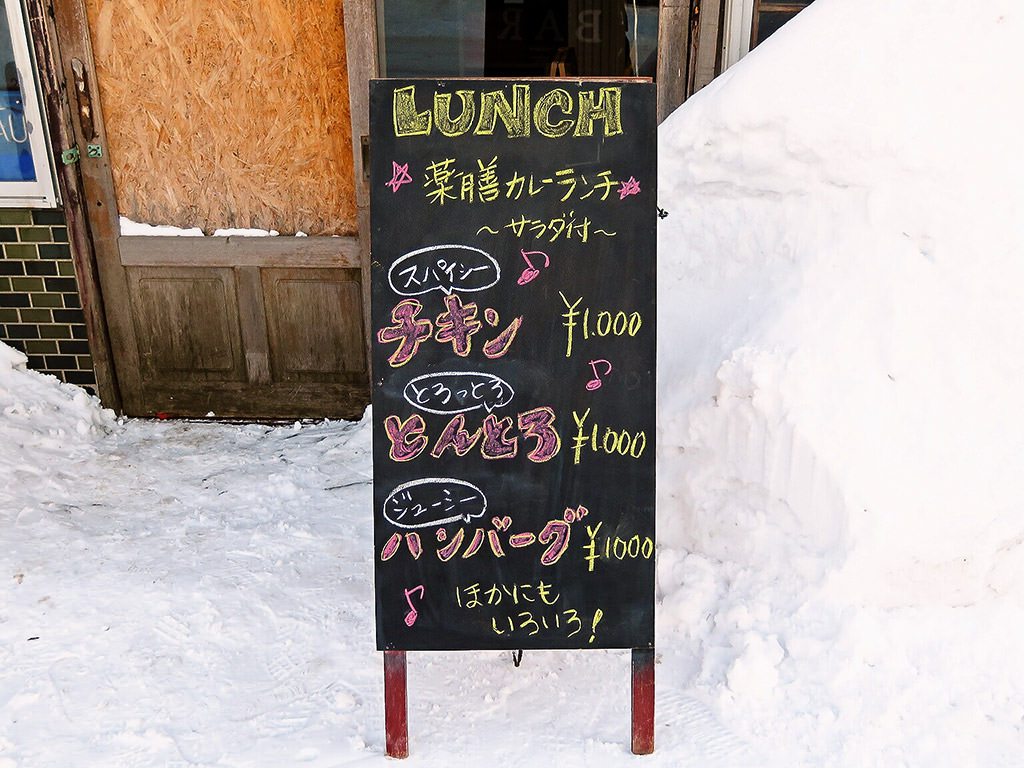 LUNCH
薬膳カレーランチ
～サラダ付～
スパイシー
チキン ¥1.000
とろっとろ
とんとろ ¥1.000
ジューシー
ハンバーグ ¥1000
ほかにも
いろいろ!
BAR
AU